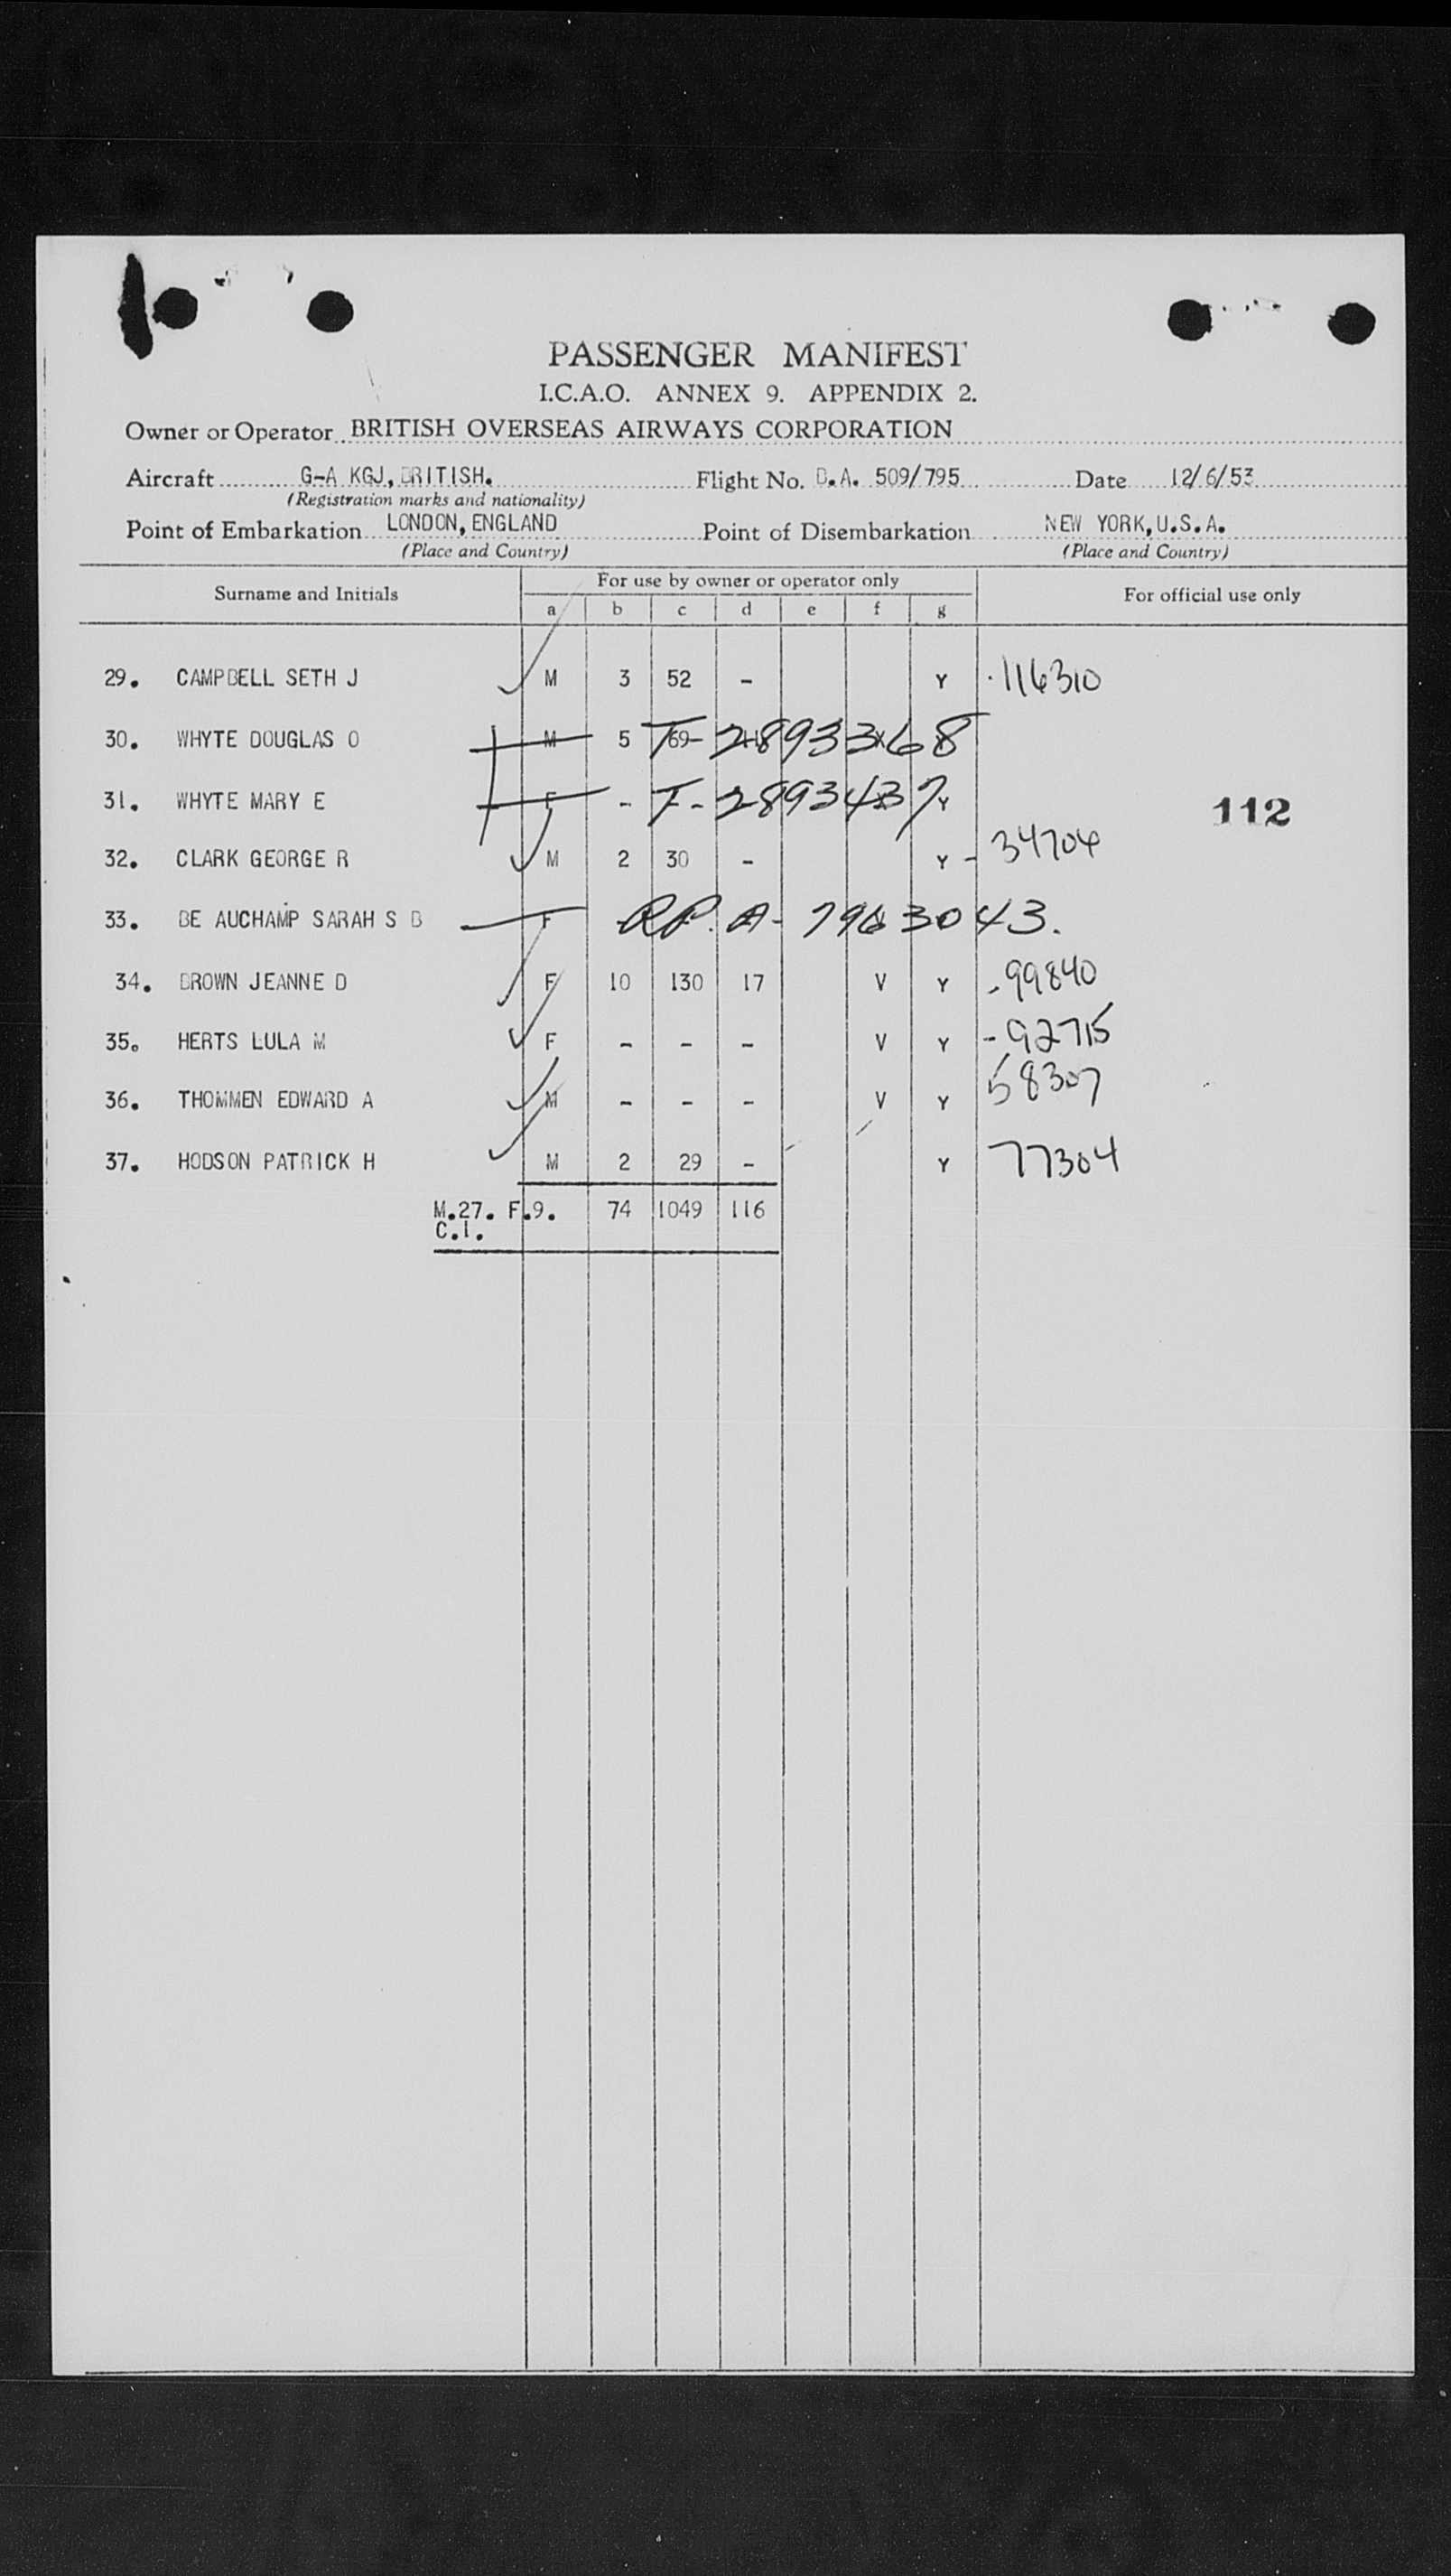 PASSENGER MANIFEST
I.C.A.O. ANNEX 9. APPENDIX 2.
Owner or Operator BRITISH OVERSEAS AIRWAYS CORPORATION
Aircraft G-A KGJ, BRITISH. Flight No. B.A. 509/795 Date 12/6/53
(Registration marks and nationality)
Point of Embarkation LONDON, ENGLAND Point of Disembarkation NEW YORK, U.S.A.
(Place and Country) (Place and Country)
Surname and Initials For use by owner or operator only For official use only
a b c d e f g
29. CAMPBELL SETH J M 3 52 - Y 116310
30. WHYTE DOUGLAS O M 5 69 T-2893368
31. WHYTE MARY E F - T-2893437 Y
112
32. CLARK GEORGE R M 2 30 - Y - 34704
33. BE AUCHAMP SARAH S B F R.P. A- 7963043.
34. BROWN JEANNE D F 10 130 17 V Y - 99840
35. HERTS LULA M F - - - V Y - 92715
36. THOMMEN EDWARD A M - - - V Y 58307
37. HODSON PATRICK H M 2 29 - Y 77304
M.27. F.9. 74 1049 116
C.1.